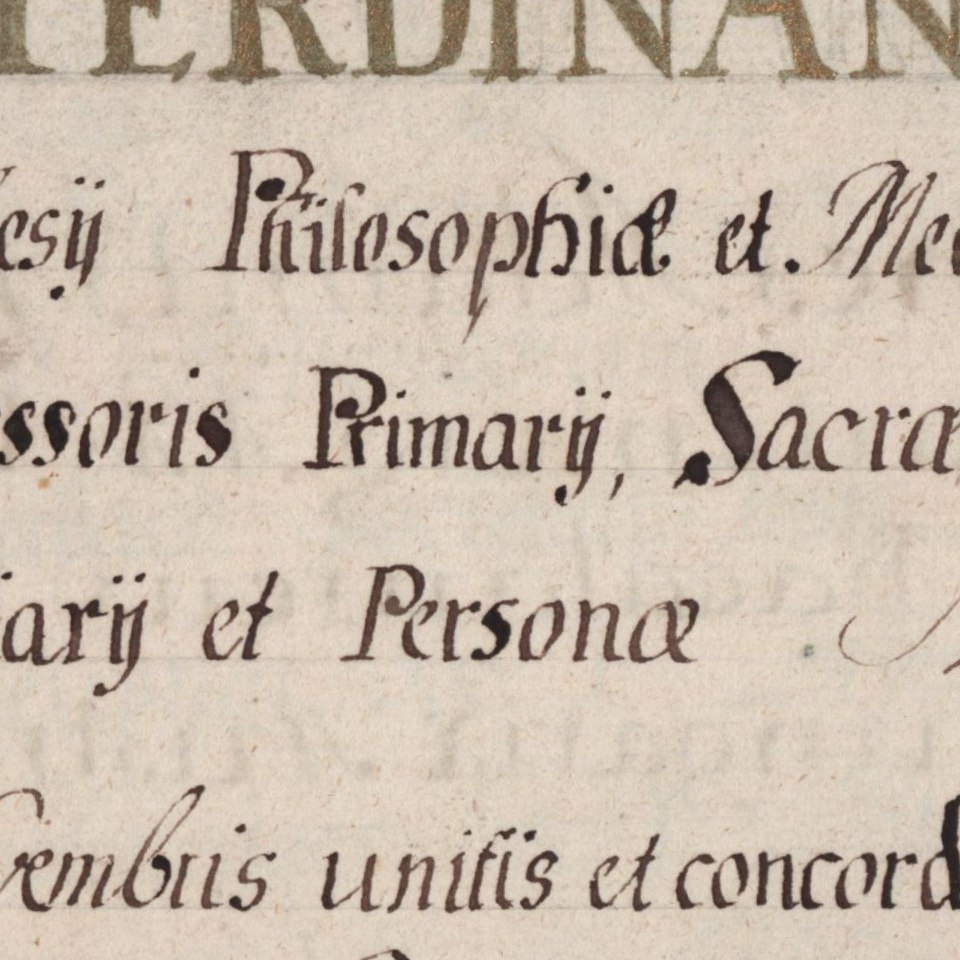 FERDINAN
esij Philosophiæ et. Med
ssoris Primarij, Sacræ
iarij et Personæ
embris unitis et concord